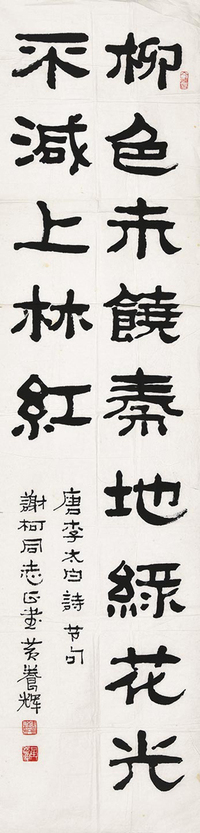 柳色未饒秦地綠花光
不減上林紅
唐李太白詩节句
謝柯同志正書黃養輝